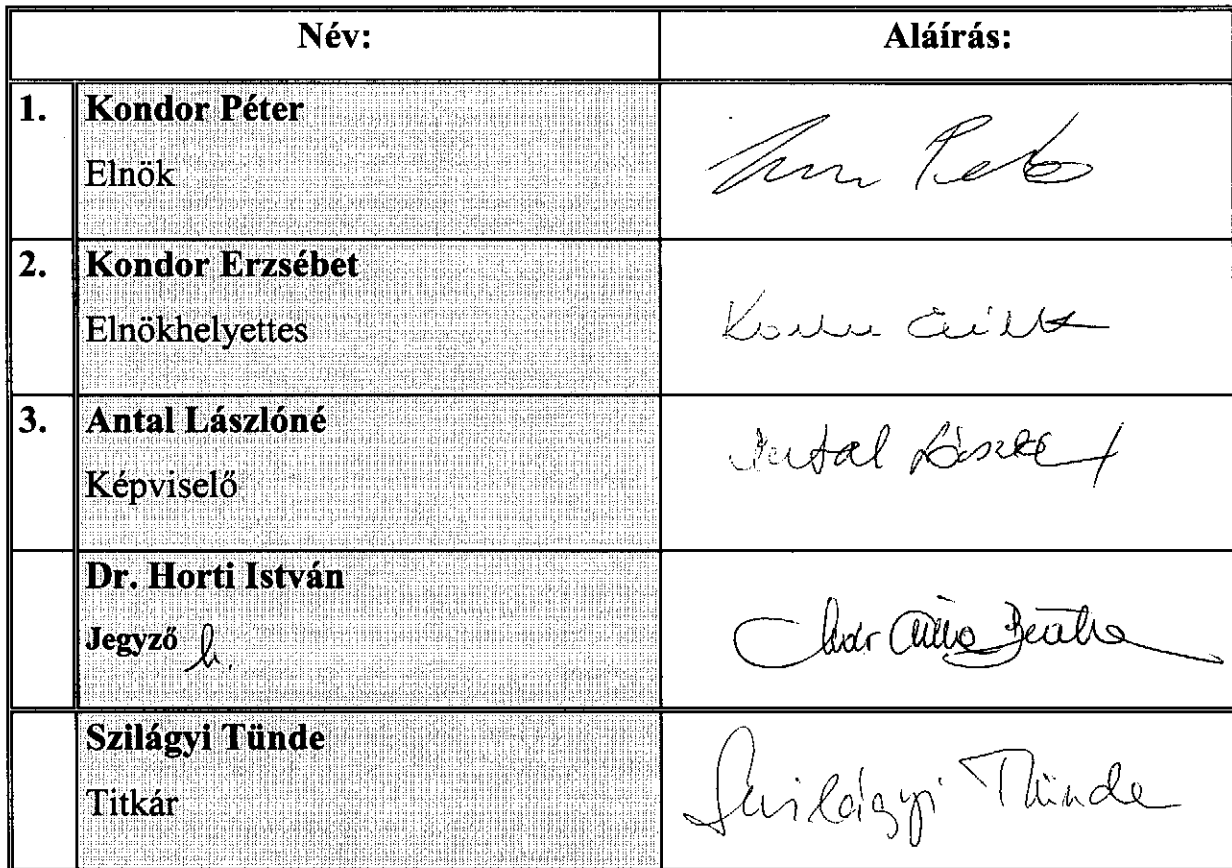 Név: Aláírás:
1. Kondor Péter
Elnök
2. Kondor Erzsébet
Elnökhelyettes
3. Antal Lászlóné
Antal
Képviselő
Dr. Horti István
Jegyző h.
Szilágyi Tünde
Szilágyi Tünde
Titkár